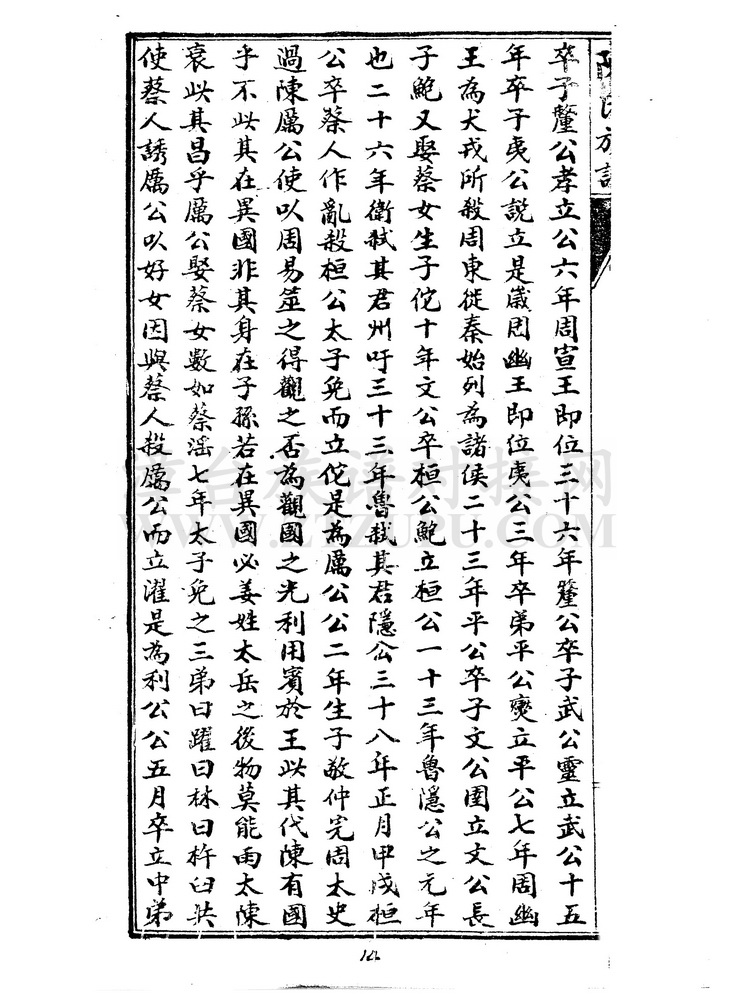 陳氏族譜
卒子釐公孝立公六年周宣王即位三十六年釐公卒子武公靈立武公十五
年卒子夷公說立是歲周幽王即位夷公三年卒弟平公燮立平公七年周幽
王為犬戎所殺周東徙秦始列為諸侯二十三年平公卒子文公圉立文公長
子鮑又娶蔡女生子佗十年文公卒桓公鮑立桓公一十三年魯隱公之元年
也二十六年衛弒其君州吁三十三年魯弒其君隱公三十八年正月甲戌桓
公卒蔡人作亂殺桓公太子免而立佗是為厲公公二年生子敬仲完周太史
過陳厲公使以周易筮之得觀之否為觀國之光利用賓於王此其代陳有國
乎不此其在異國非其身在子孫若在異國必姜姓太岳之後物莫能兩太陳
衰此其昌乎厲公娶蔡女數如蔡淫七年太子免之三弟曰躍曰林曰杵臼共
使蔡人誘厲公以好女因與蔡人殺厲公而立濯是為利公公五月卒立中弟
章台族譜對接網
WWW.ZTZUPU.COM